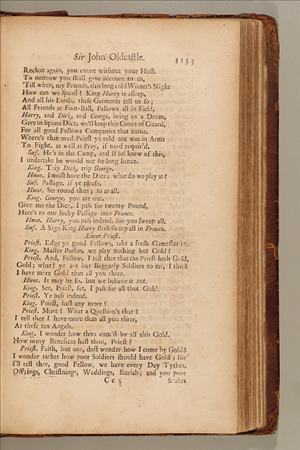 Sir John Oldcastle. 3155
Reckon again, you count without your Host.
To morrow you shall give account to us,
'Till when, my Friends, this long cold Winter's Night
How can we spend? King Harry is asleep,
And all his Lords; these Garments tell us so;
All Friends at Foot-Ball, Fellows all in Field,
Harry, and Dick, and George, bring us a Drum,
Give us square Dice, we'll keep this Court of Guard,
For all good Fellows Companies that come.
Where's that mad Priest ye told me was in Arms
To Fight, as well as Pray, if need requir'd.
Suf. He's in the Camp, and if he knew of this,
I undertake he would not be long hence.
King. Trip Dick, trip George.
Hunt. I must have the Dice; what do we play at?
Suf. Passage, if ye please.
Hunt. Set round then; so at all.
King. George, you are out.
Give me the Dice, I pass for twenty Pound,
Here's to our lucky Passage into France.
Hunt. Harry, you pass indeed, for you sweep all.
Suf. A Sign King Harry shall sweep all in France.
Enter Priest.
Priest. Edge ye good Fellows, take a fresh Gamester in.
King. Master Parson, we play nothing but Gold?
Priest. And, Fellow, I tell thee that the Priest hath Gold,
Gold; what? ye are but Beggarly Soldiers to me, I think
I have more Gold than all you three.
Hunt. It may be so, but we believe it not.
King. Set, Priest, set, I pass for all that Gold.
Priest. Ye pass indeed.
King. Priest, hast any more?
Priest. More? What a Question's that?
I tell thee I have more than all you three,
At these ten Angels.
King. I wonder how thou com'st by all this Gold.
How many Benefices hast thou, Priest?
Priest. Faith, but one, dost wonder how I come by Gold?
I wonder rather how poor Soldiers should have Gold; for
I'll tell thee, good Fellow, we have every Day Tythes,
Offerings, Christnings, Weddings, Burials; and you poor
Cc 5 Snakes